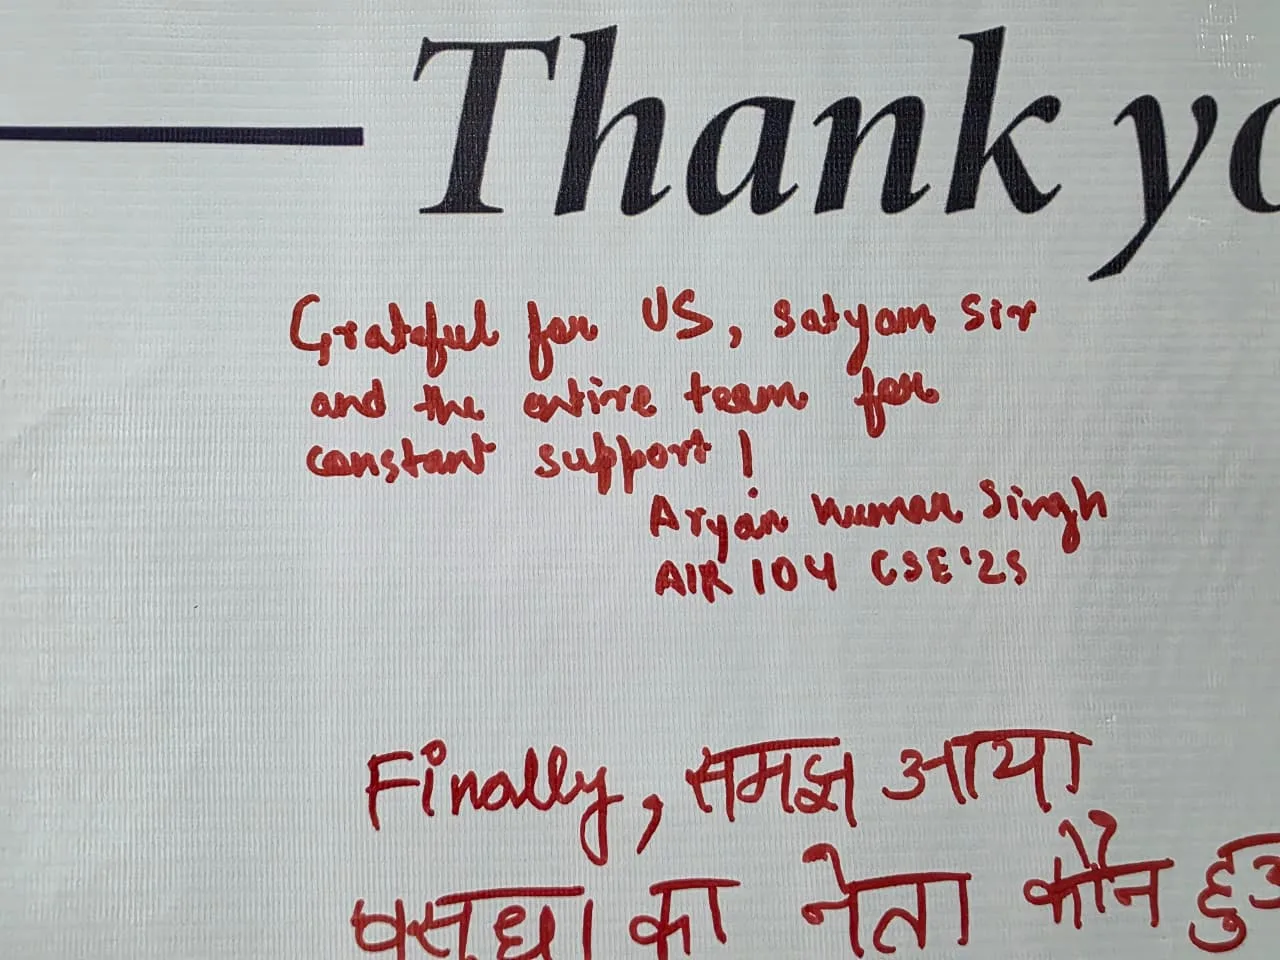 Thank yo
Grateful for US, Satyam Sir
and the entire team for
constant support!
Aryan Kumar Singh
AIR 104 CSE'25
Finally, समझ आया
वसुधा का नेता कौन हुआ